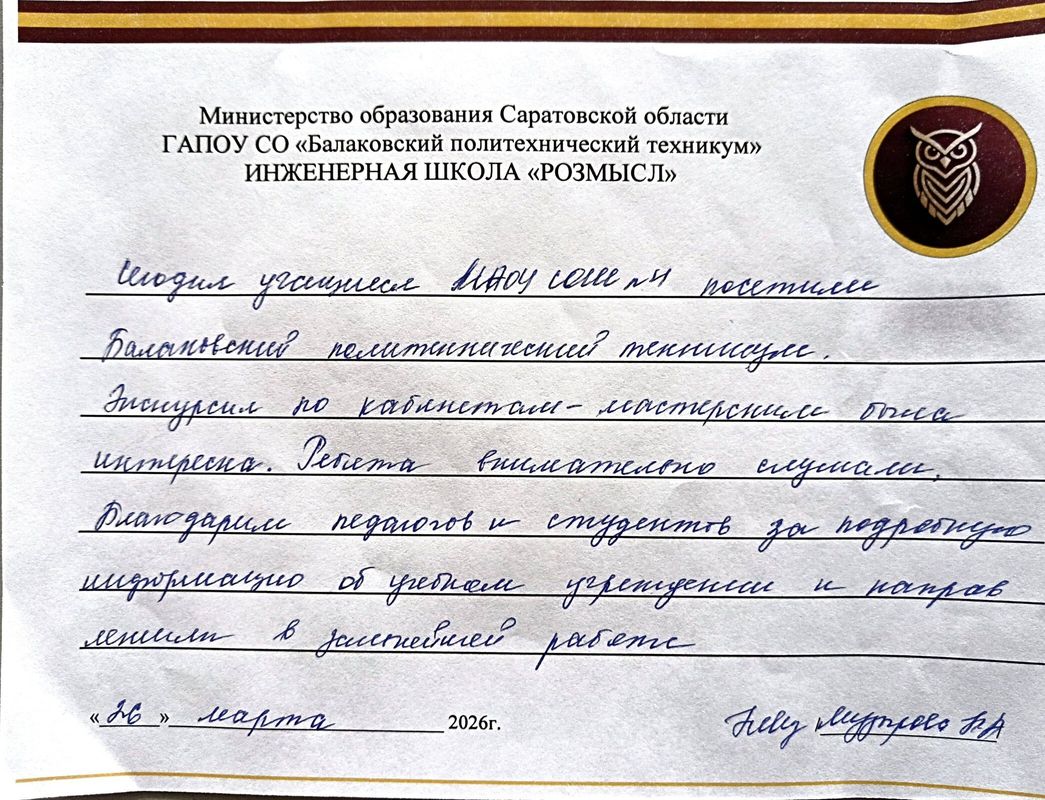 Министерство образования Саратовской области
ГАПОУ СО «Балаковский политехнический техникум»
ИНЖЕНЕРНАЯ ШКОЛА «РОЗМЫСЛ»
Сегодня учащиеся МАОУ СОШ №4 посетили
Балаковский политехнический техникум.
Экскурсия по кабинетам-мастерским была
интересна. Ребята внимательно слушали.
Благодарим педагогов и студентов за подробную
информацию об учебном учреждении и направ
лениях в дальнейшей работе
«26» марта 2026г.